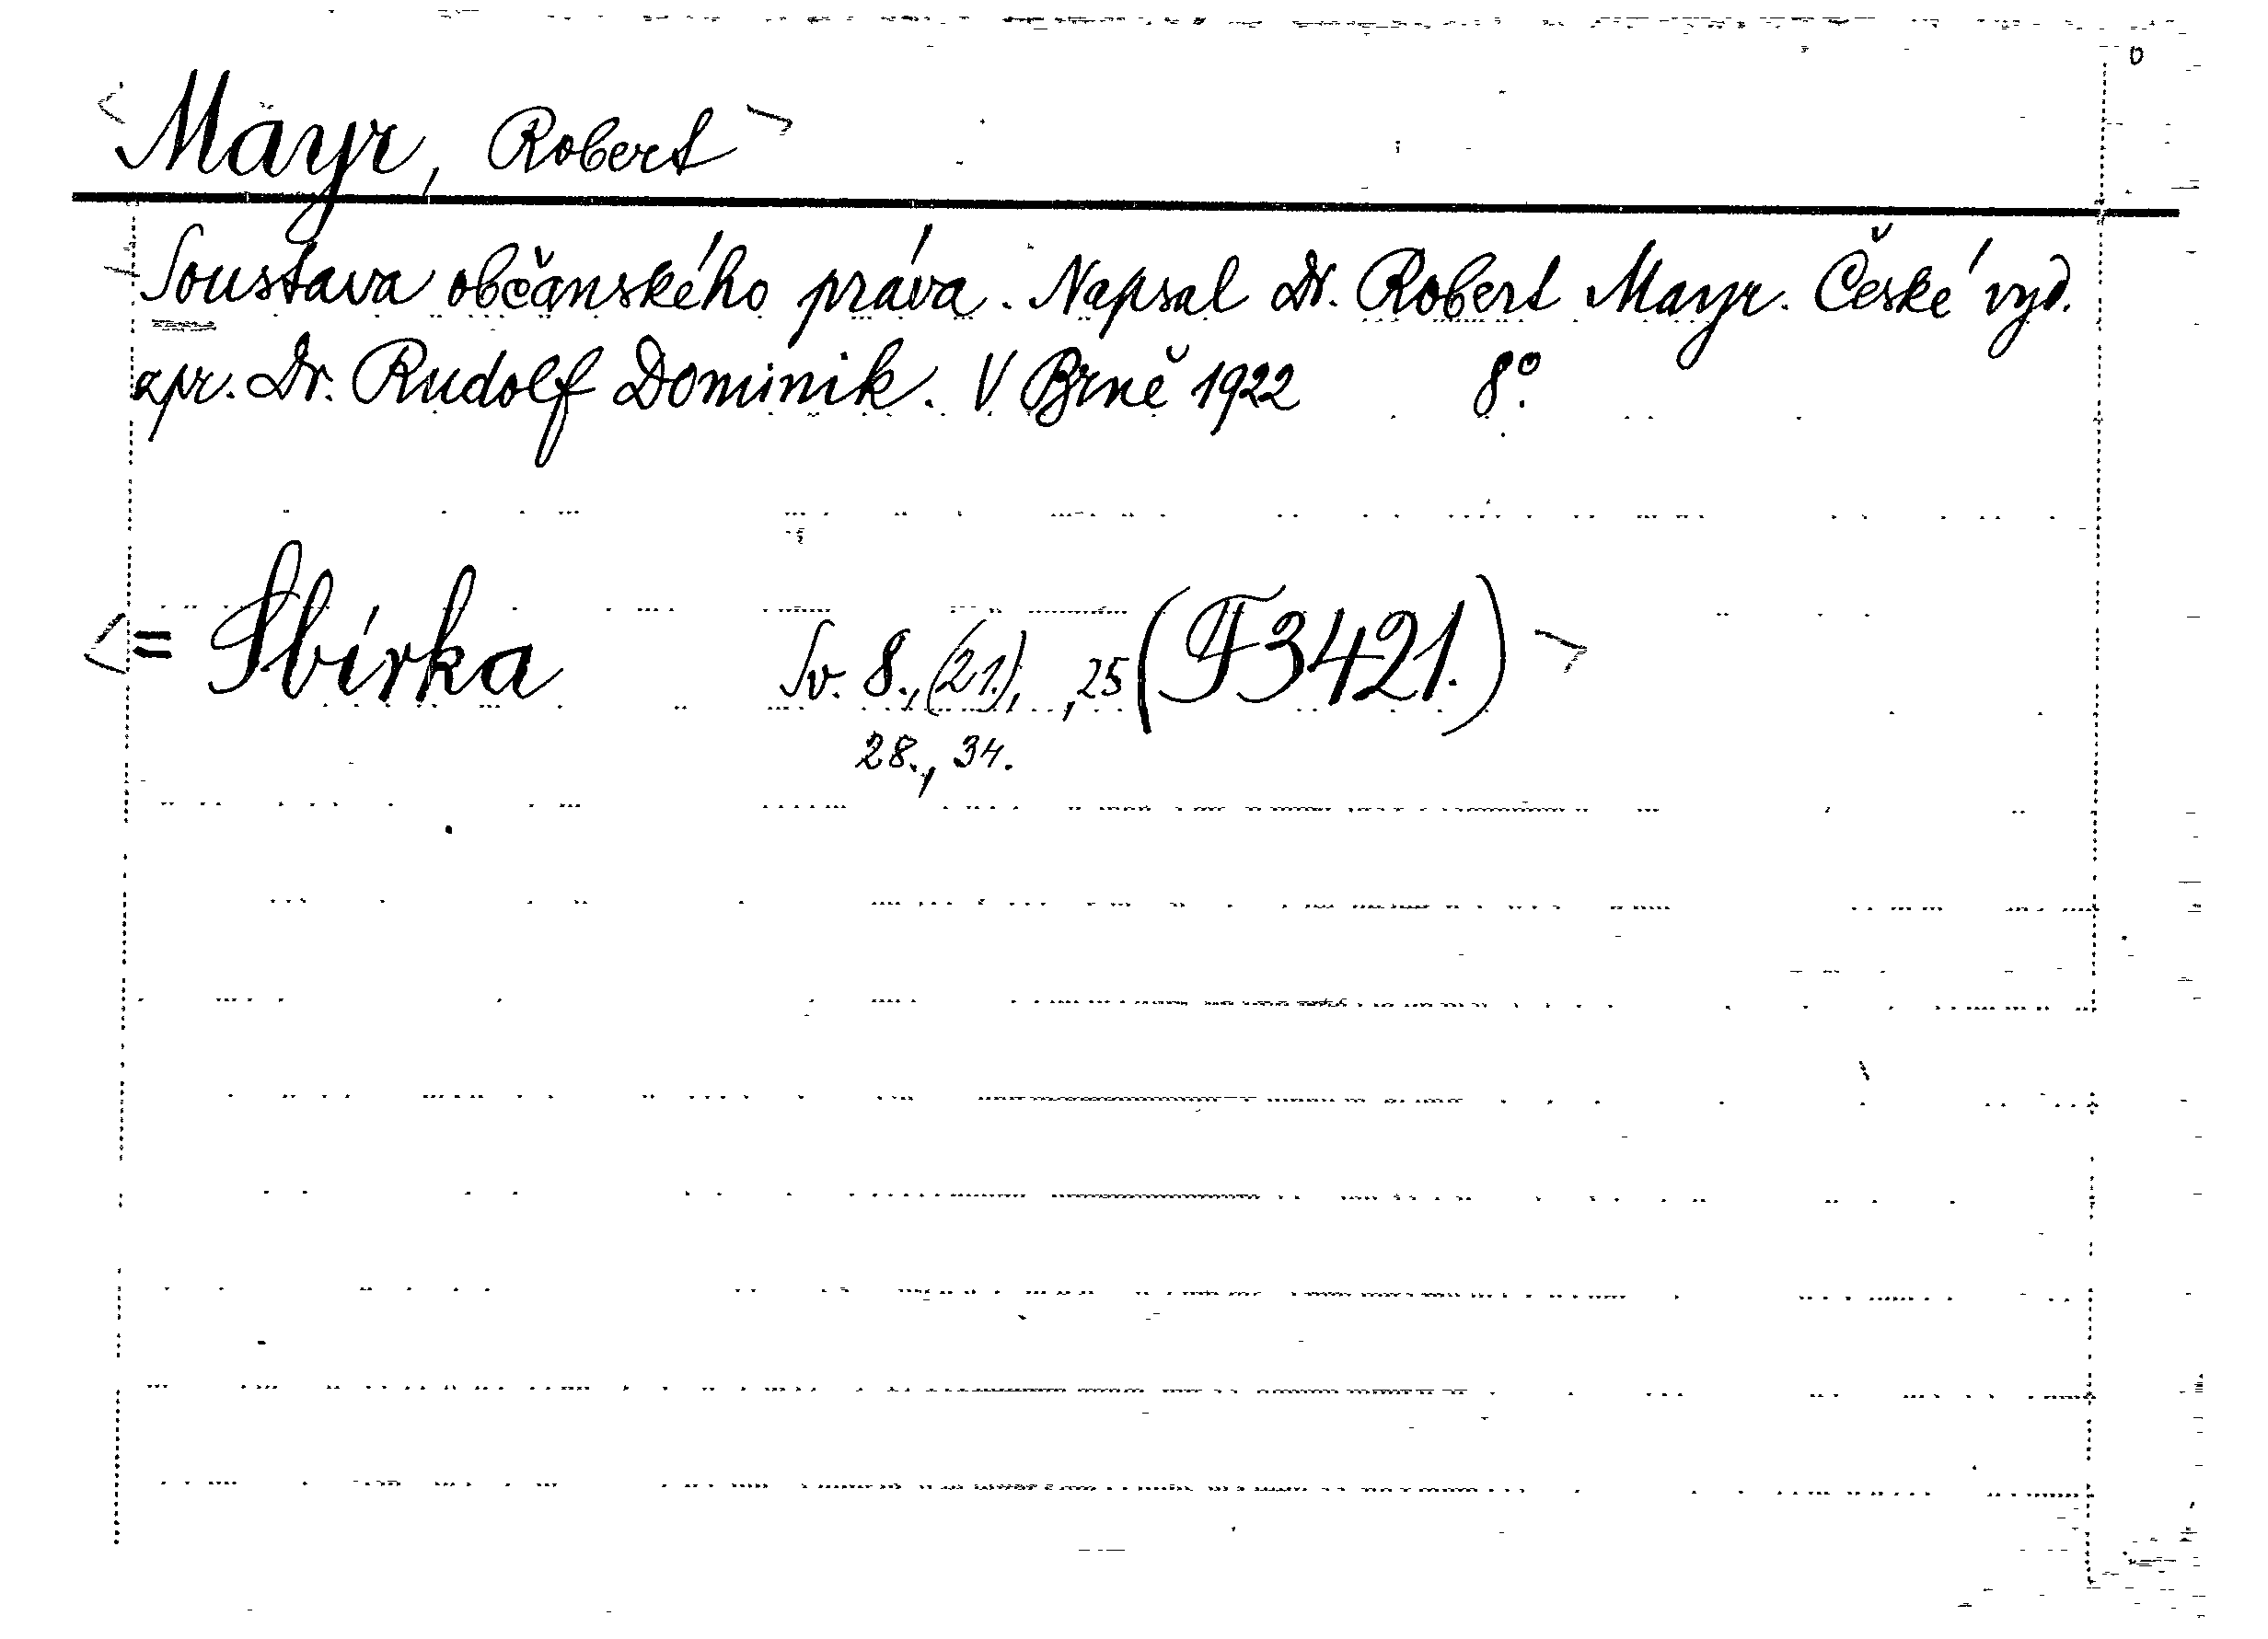 <Mayr, Robert>
Soustava občanského práva. Napsal Dr. Robert Mayr. České vyd.
zpr. Dr. Rudolf Dominik. V Brně 1922 8°.
<= Sbírka Sv. 8., (21.), ,25 (F 3421.)>
28., 34.